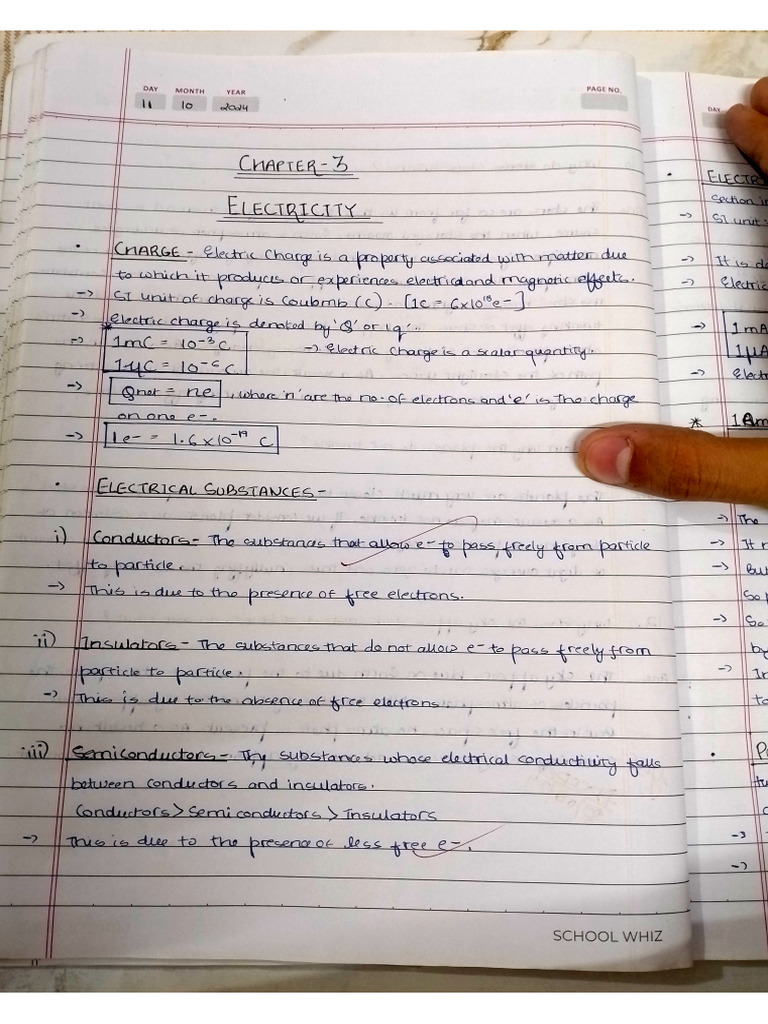 DAY MONTH YEAR PAGE NO.
11 10 2024
CHAPTER-3
ELECTRICITY
• CHARGE - Electric Charge is a property associated with matter due
to which it produces or experiences electrical and magnetic effects.
→ SI unit of charge is Coulomb (C). [1C = 6x10¹⁸e-]
→ Electric charge is denoted by 'Q' or 'q'.
→ 1mC = 10⁻³C → Electric Charge is a scalar quantity.
1μC = 10⁻⁶C
→ Qnet = ne, where 'n' are the no. of electrons and 'e' is the charge
on one e-.
→ 1e- = 1.6x10⁻¹⁹ C
• ELECTRICAL SUBSTANCES -
i) Conductors - The substances that allow e- to pass freely from particle
to particle.
→ This is due to the presence of free electrons.
ii) Insulators - The substances that do not allow e- to pass freely from
particle to particle.
→ This is due to the absence of free electrons.
iii) Semiconductors - The substances whose electrical conductivity falls
between conductors and insulators.
Conductors > Semiconductors > Insulators
→ This is due to the presence of less free e-.
SCHOOL WHIZ
DAY
• ELECTR
Section i
→ SI unit:
→ It is d
→ Electric
→ 1mA
1μA
→ Elect
* 1Am
→ The
→ It
→ But
So
→ So
by
→ In
to
• P